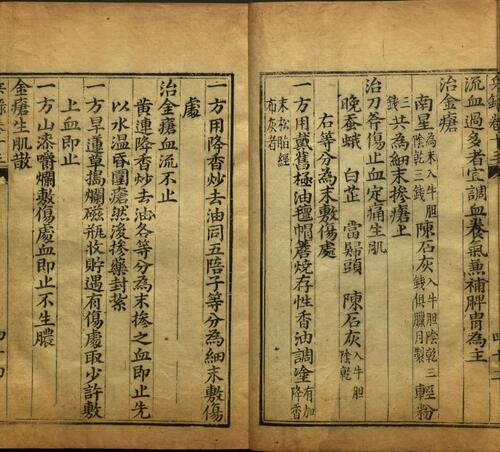 流血過多者宜調血養氣兼補脾胃為主
治金瘡
南星為末入牛胆陰乾三錢 陳石灰入牛胆陰乾三錢俱臘月製 輕粉
三錢 共為細末摻瘡上
治刀斧傷止血定痛生肌
晚蚕蛾 白芷 當歸頭 陳石灰入牛胆陰乾
右等分為末敷傷處
一方用戴舊極油氊帽簷燒存性香油調塗有加降香
末松脂經
有灰者
一方用降香炒去油同五陪子等分為細末敷傷
處
治金瘡血流不止
黄連降香炒去油各等分為末摻之血即止先
以水温昏圍瘡然後摻藥封紮
一方旱蓮草搗爛磁瓶收貯遇有傷處取少許敷
上血即止
一方山漆嚼爛敷傷處血即止不生膿
金瘡生肌散